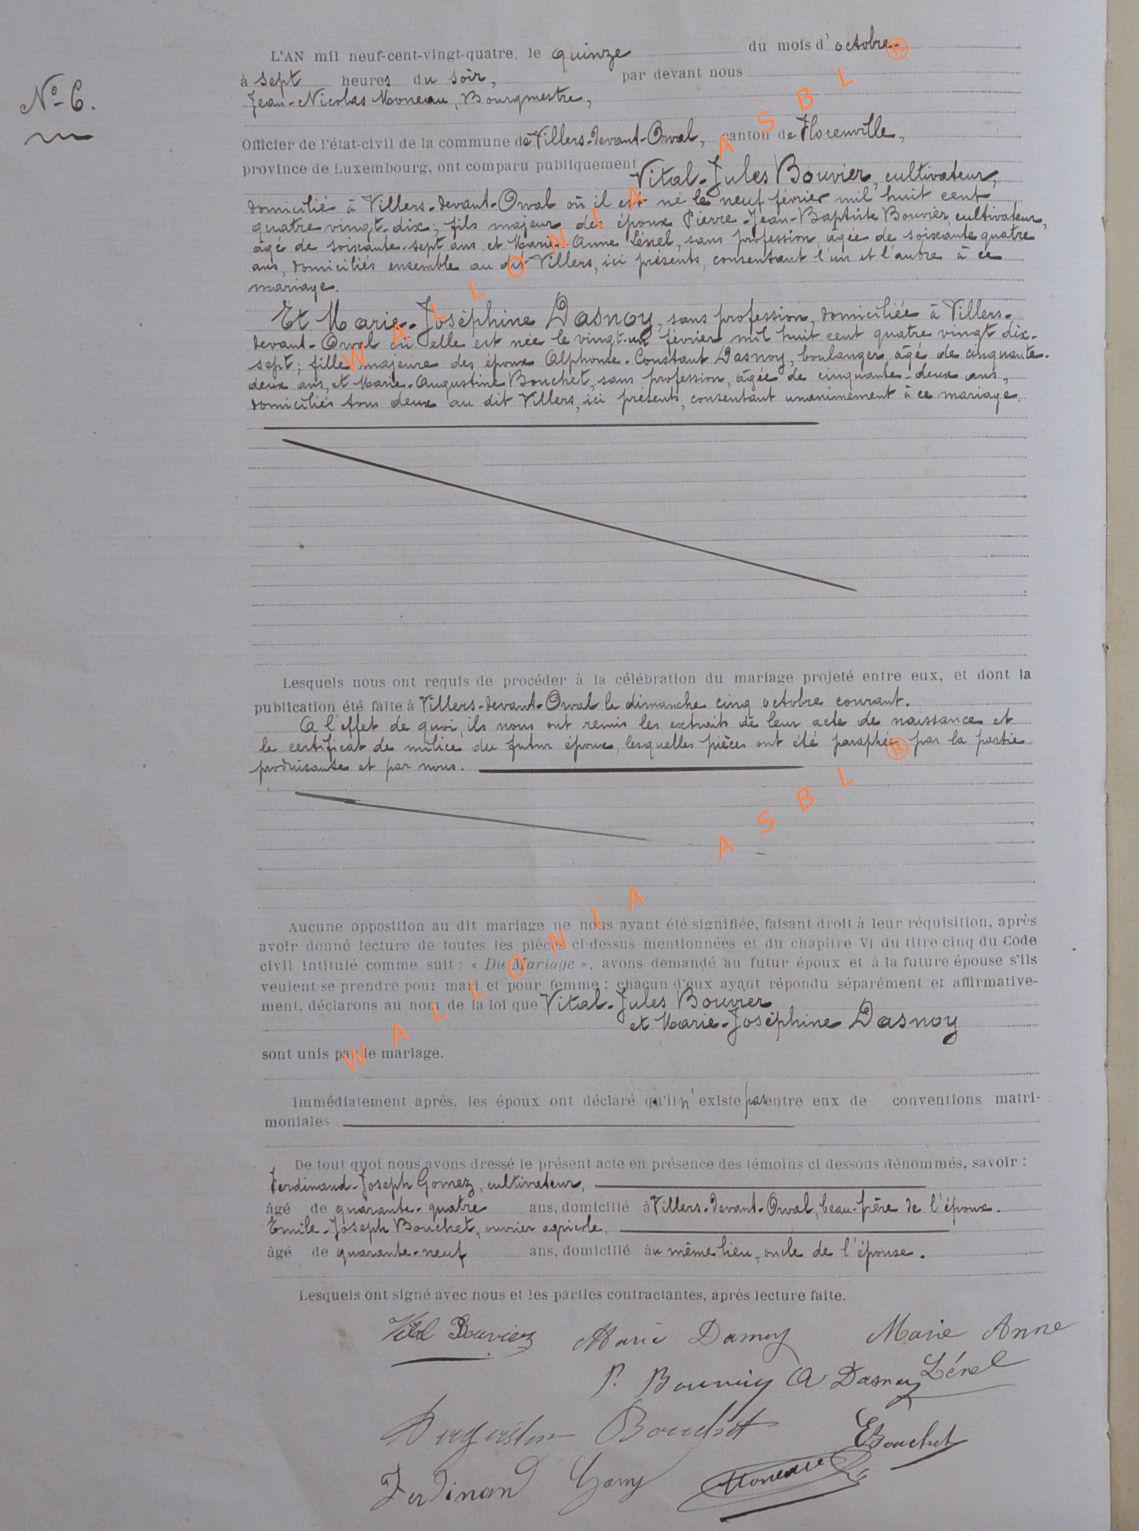 L'AN mil neuf-cent-vingt-quatre, le quinze du mois d'octobre
à sept heures du soir, par devant nous
Jean-Nicolas Moneau, Bourgmestre,
Officier de l'état-civil de la commune de Villers-devant-Orval, canton de Florenville,
province de Luxembourg, ont comparu publiquement Vital-Jules Bouvier, cultivateur,
domicilié à Villers-devant-Orval où il est né le neuf février mil huit cent
quatre vingt-dix, fils majeur des époux Pierre-Jean-Baptiste Bouvier, cultivateur,
âgé de soixante-sept ans et Marie Anne Lénel, sans profession, âgée de soixante quatre
ans, domiciliés ensemble au dit Villers, ici présents, consentant l'un et l'autre à ce
mariage.
Et Marie-Joséphine Dasnoy, sans profession, domiciliée à Villers-
devant-Orval où elle est née le vingt-un février mil huit cent quatre vingt dix-
sept; fille majeure des époux Alphonse-Constant Dasnoy, boulanger âgé de cinquante-
deux ans, et Marie-Augustine Bouchet, sans profession, âgée de cinquante-deux ans,
domiciliés tous deux au dit Villers, ici présents, consentant unanimement à ce mariage.
Lesquels nous ont requis de procéder à la célébration du mariage projeté entre eux, et dont la
publication été faite à Villers-devant-Orval le dimanche cinq octobre courant.
A l'effet de quoi, ils nous ont remis les extraits de leur acte de naissance et
le certificat de milice du futur époux, lesquelles pièces ont été paraphées par la partie
produisante et par nous.
Aucune opposition au dit mariage ne nous ayant été signifiée, faisant droit à leur réquisition, après
avoir donné lecture de toutes les pièces ci-dessus mentionnées et du chapitre VI du titre cinq du Code
civil intitulé comme suit : « Du Mariage », avons demandé au futur époux et à la future épouse s'ils
veulent se prendre pour mari et pour femme ; chacun d'eux ayant répondu séparément et affirmative-
ment, déclarons au nom de la loi que Vital-Jules Bouvier
et Marie-Joséphine Dasnoy
sont unis par le mariage.
Immédiatement après, les époux ont déclaré qu'il n'existe pas entre eux de conventions matri-
moniales
De tout quoi nous avons dressé le présent acte en présence des témoins ci dessous dénommés, savoir :
Ferdinand-Joseph Gomez, cultivateur,
âgé de quarante-quatre ans, domicilié à Villers-devant-Orval, beau-frère de l'époux.
Emile-Joseph Bouchet, ouvrier agricole,
âgé de quarante-neuf ans, domicilié au même lieu, oncle de l'épouse.
Lesquels ont signé avec nous et les parties contractantes, après lecture faite.
Vital Bouvier Marie Dasnoy Marie Anne
P. Bouvier A Dasnoy Lénel
Augustine Bouchet E Bouchet
Ferdinand Moneau
No 6.
WALLONIA ASBL ®
WALLONIA ASBL ®